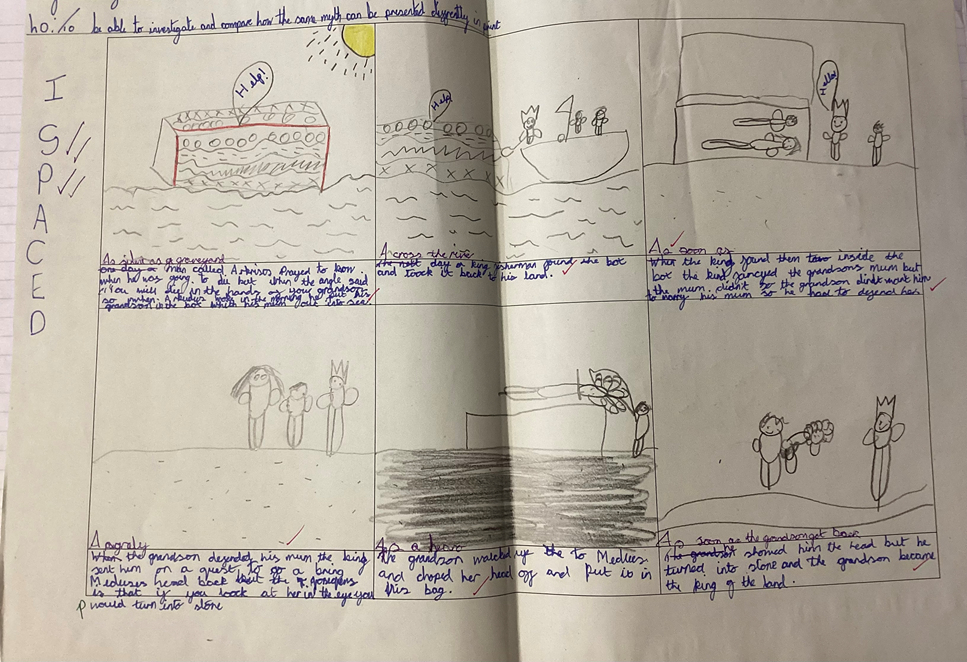 be able to investigate and compare how the same myth can be presented differently in print
I
S
P
A
C
E
D
Help!
Help
Hello!
As silent as a graveyard
one day a man called Arkrisos prayed to know
when he was going to die but when the angle said
"You will die in the hands of your grandson
so when woke in the morning he put his
grandson in the box which his mum put into sea
Across the river
the next day a king fisherman found the box
and took it back to his land.
As soon as
When the king found them inside the
box the king fancyed the grandsons mum but
the mum didn't so the grandson didn't want him
to marry his mum so he had to defend her
Angrely
When the grandson defended his mum the king
sent him on a quest to go a bring
Meduses head back but the
is that if you look at her in the eye you
would turn into stone
As a hero
the grandson walked up to Meduses
and choped her head off and Put it in
his bag.
As soon as the grandson got back
the grandson showed him the head but he
turned into stone and the grandson became
the king of the land.